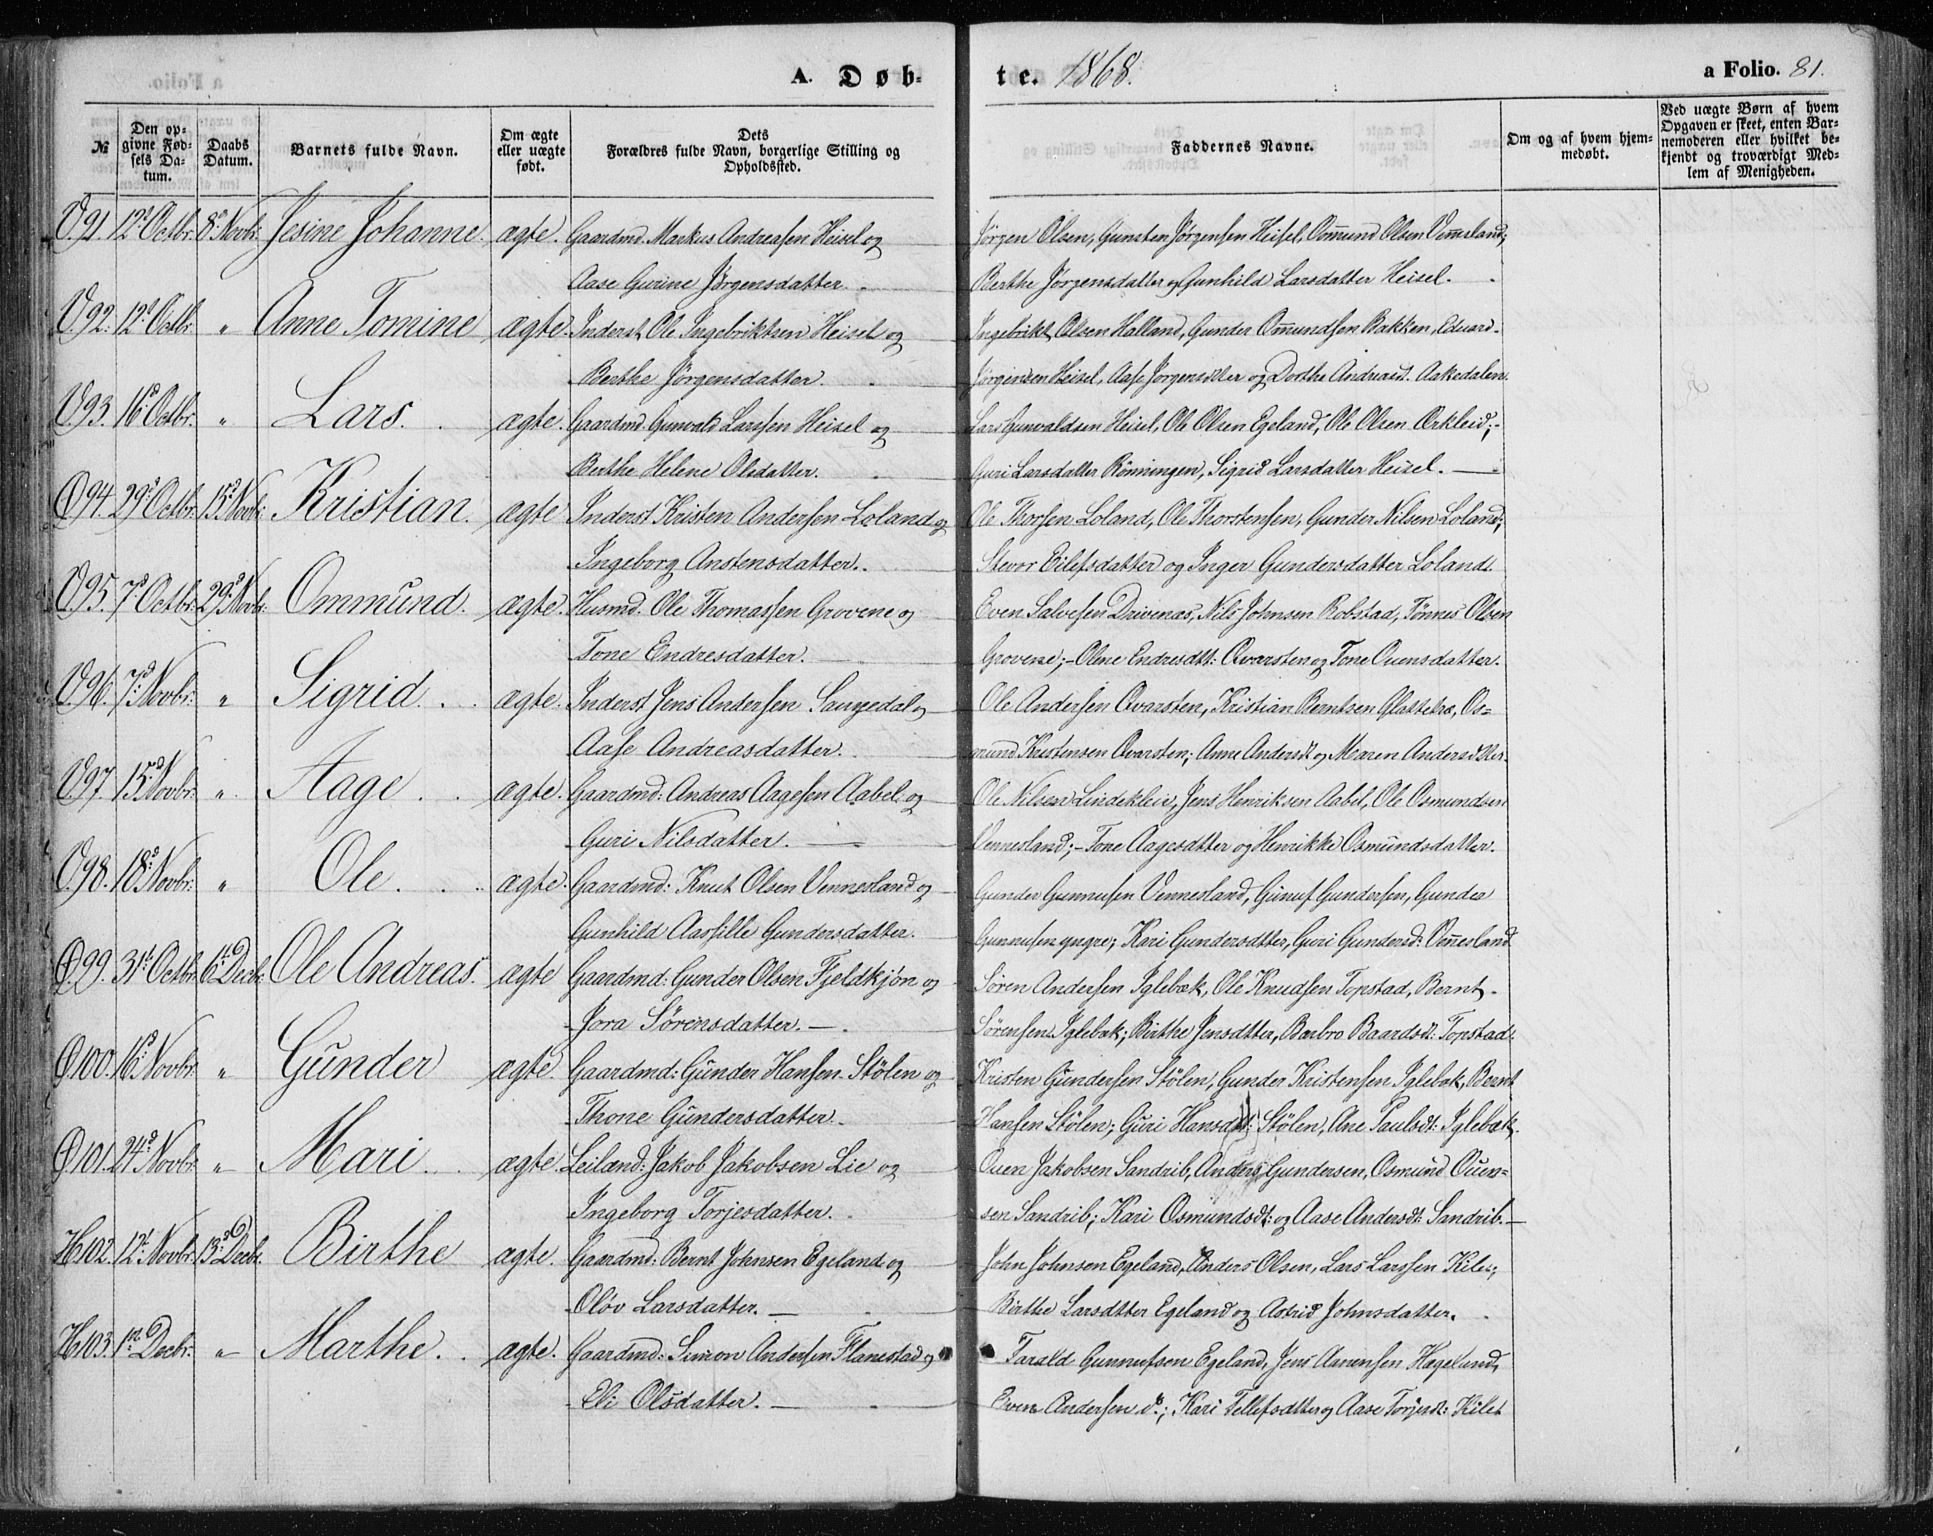 A. Døb-
te. 1868.
a Folio. 81.
№
Den op-
givne Fød-
sels Da-
tum.
Daabs
Datum.
Barnets fulde Navn.
Om ægte
eller uægte
født.
Dets
Forældres fulde Navn, borgerlige Stilling og
Opholdssted.
Faddernes Navne.
Om og af hvem hjem-
medøbt.
Ved uægte Børn af hvem
Opgaven er skeet, enten Bar-
nemoderen eller hvilket be-
kjendt og troværdigt Med-
lem af Menigheden.
V. 91. 12te Octbr. 8de Novbr. Jesine Johanne. ægte. Gaardmd. Markus Andreasen Heisel og
Aase Gurine Jørgensdatter.
Jørgen Olsen, Gunsten Jørgensen Heisel, Omund Olsen Vennesland;
Berthe Jørgensdatter og Gunhild Larsdatter Heisel.
V. 92. 12te Octbr. " Anne Tomine ægte. Inderst Ole Ingebriktsen Heisel og
Berthe Jørgensdatter.
Ingebrikt Olsen Halland, Gunder Omundsen Bakken, Eduard
Jørgensen Heisel, Aase Jørgensdtter og Dorthe Andreasdt. Aakedalen.
V. 93. 16de Octbr. " Lars. ægte. Gaardmd. Gunvald Larssen Heisel og
Berthe Helene Olsdatter.
Lars Gunvaldsen Heisel, Ole Olsen Egeland, Ole Olsen Erkleid;
Guri Larsdatter Rönningen, Sigrid Larsdatter Heisel.
Ø 94. 29de Octbr. 15de Novbr. Kristian. ægte Inderst Kristen Andersen Loland og
Ingeborg Anstensdatter.
Ole Thorsen Loland, Ole Thorstensen, Gunder Nilsen Loland;
Stevor Eilefsdatter og Inger Gundersdatter Loland.
V. 95. 7de Octbr. 29de Novbr. Ommund. ægte. Husmd. Ole Thomassen Grovene og
Tone Endresdatter.
Even Salvesen Drivenæs, Nils Johnsen Robstad, Tönnes Olsen
Grovene;- Olene Endresdtt: Qvarsten og Tone Ouensdatter.
V. 96. 7de Novbr: " Sigrid. ægte. Inderst Jens Andersen Sangedal og
Aase Andreasdatter.
Ole Andersen Qvarsten, Kristian Berntsen Glattetræ, Os-
mund Kristensen Qvarsten; Anne Andersdt og Maren Andersdtter.
V. 97 15de Novbr. " Aage. ægte. Gaardmd: Andreas Aagesen Aabel og
Guri Nilsdatter.
Ole Nilsen Lindekleiv, Jens Henriksen Aabel, Ole Osmundsen
Vennesland;- Tone Aagesdtter og Henrikke Osmundsdatter.
V. 98. 18de Novbr. " Ole. ægte. Gaardmd: Knut Olsen Vennesland og
Gunhild Aasille Gundersdatter.
Gunder Gunnufsen Vennesland, Gunuf Gundersen, Gunder
Gunnufsen yngre; Kari Gundersdtter, Guri Gundersd: Vennesland
Ø. 99. 31te Octbr. 6te Decbr: Ole Andreas. ægte Gaardmd: Gunder Olsen Fjeldkjön og
Jora Sörensdatter.
Sören Andersen Iglebæk, Ole Knudsen Topstad, Bernt
Sörensen Iglebæk; Birthe Jensdtter, Barbro Baardsdt: Topstad.
Ø. 100. 16de Novbr. " Gunder ægte. Gaardmd: Gunder Hansen Stölen og
Thone Gundersdatter.
Kristen Gundersen Stölen, Gunder Kristensen Iglebæk, Bernt
Hansen Stölen; Guri Hansdt: Stölen, Ane Paulsdt: Iglebæk.
Ø. 101. 24de Novbr. " Mari. ægte. Leilænd: Jakob Jakobsen Lie og
Ingeborg Torjesdatter.
Ouen Jakobsen Sandrib, Anders Gundersen, Osmund Ouen-
sen Sandrib; Kari Osmundsdt: og Aase Andersdt: Sandrib.
H. 102. 12te Novbr. 13de Decbr. Birthe ægte. Gaardmd: Bernt Johnsen Egeland og
Olöv Larsdatter.
John Johnsen Egeland, Anders Olsen, Lars Larssen Kile;
Birthe Larsdtter Egeland og Astrid Johnsdatter.
H. 103. 1ste Decbr. " Marthe. ægte. Gaardmd: Simon Andersen Flanestad og
Eli Olsdatter.
Tarald Gunnufsen Egeland, Jens Aanensen Hægelund,
Even Andersen do; Kari Tellefsdtter og Aase Torjesdt: Kile